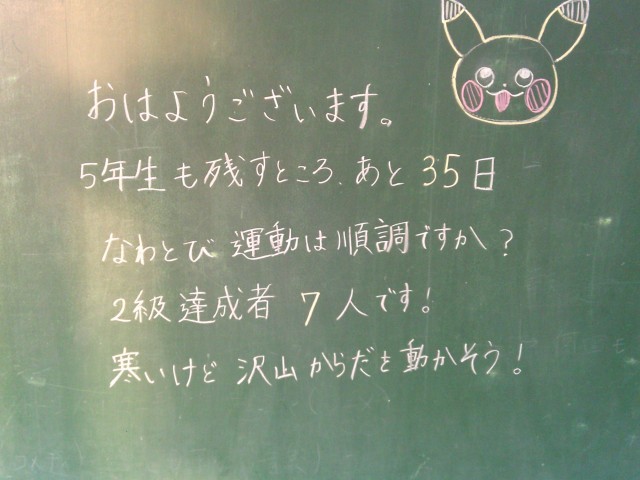 おはようございます。
5年生も残すところ、あと35日
なわとび 運動は順調ですか?
2級達成者 7人です!
寒いけど 沢山からだを動かそう!